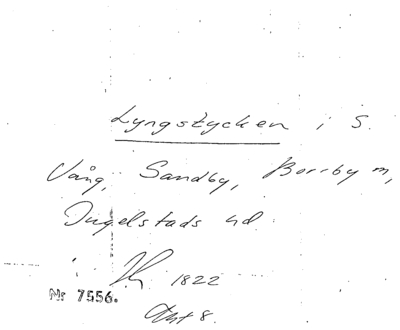 Lyngstycken i S.
Vång, Sandby, Borrby m,
Ingelstads hd.
1822
Nr 7556.
Akt 8.